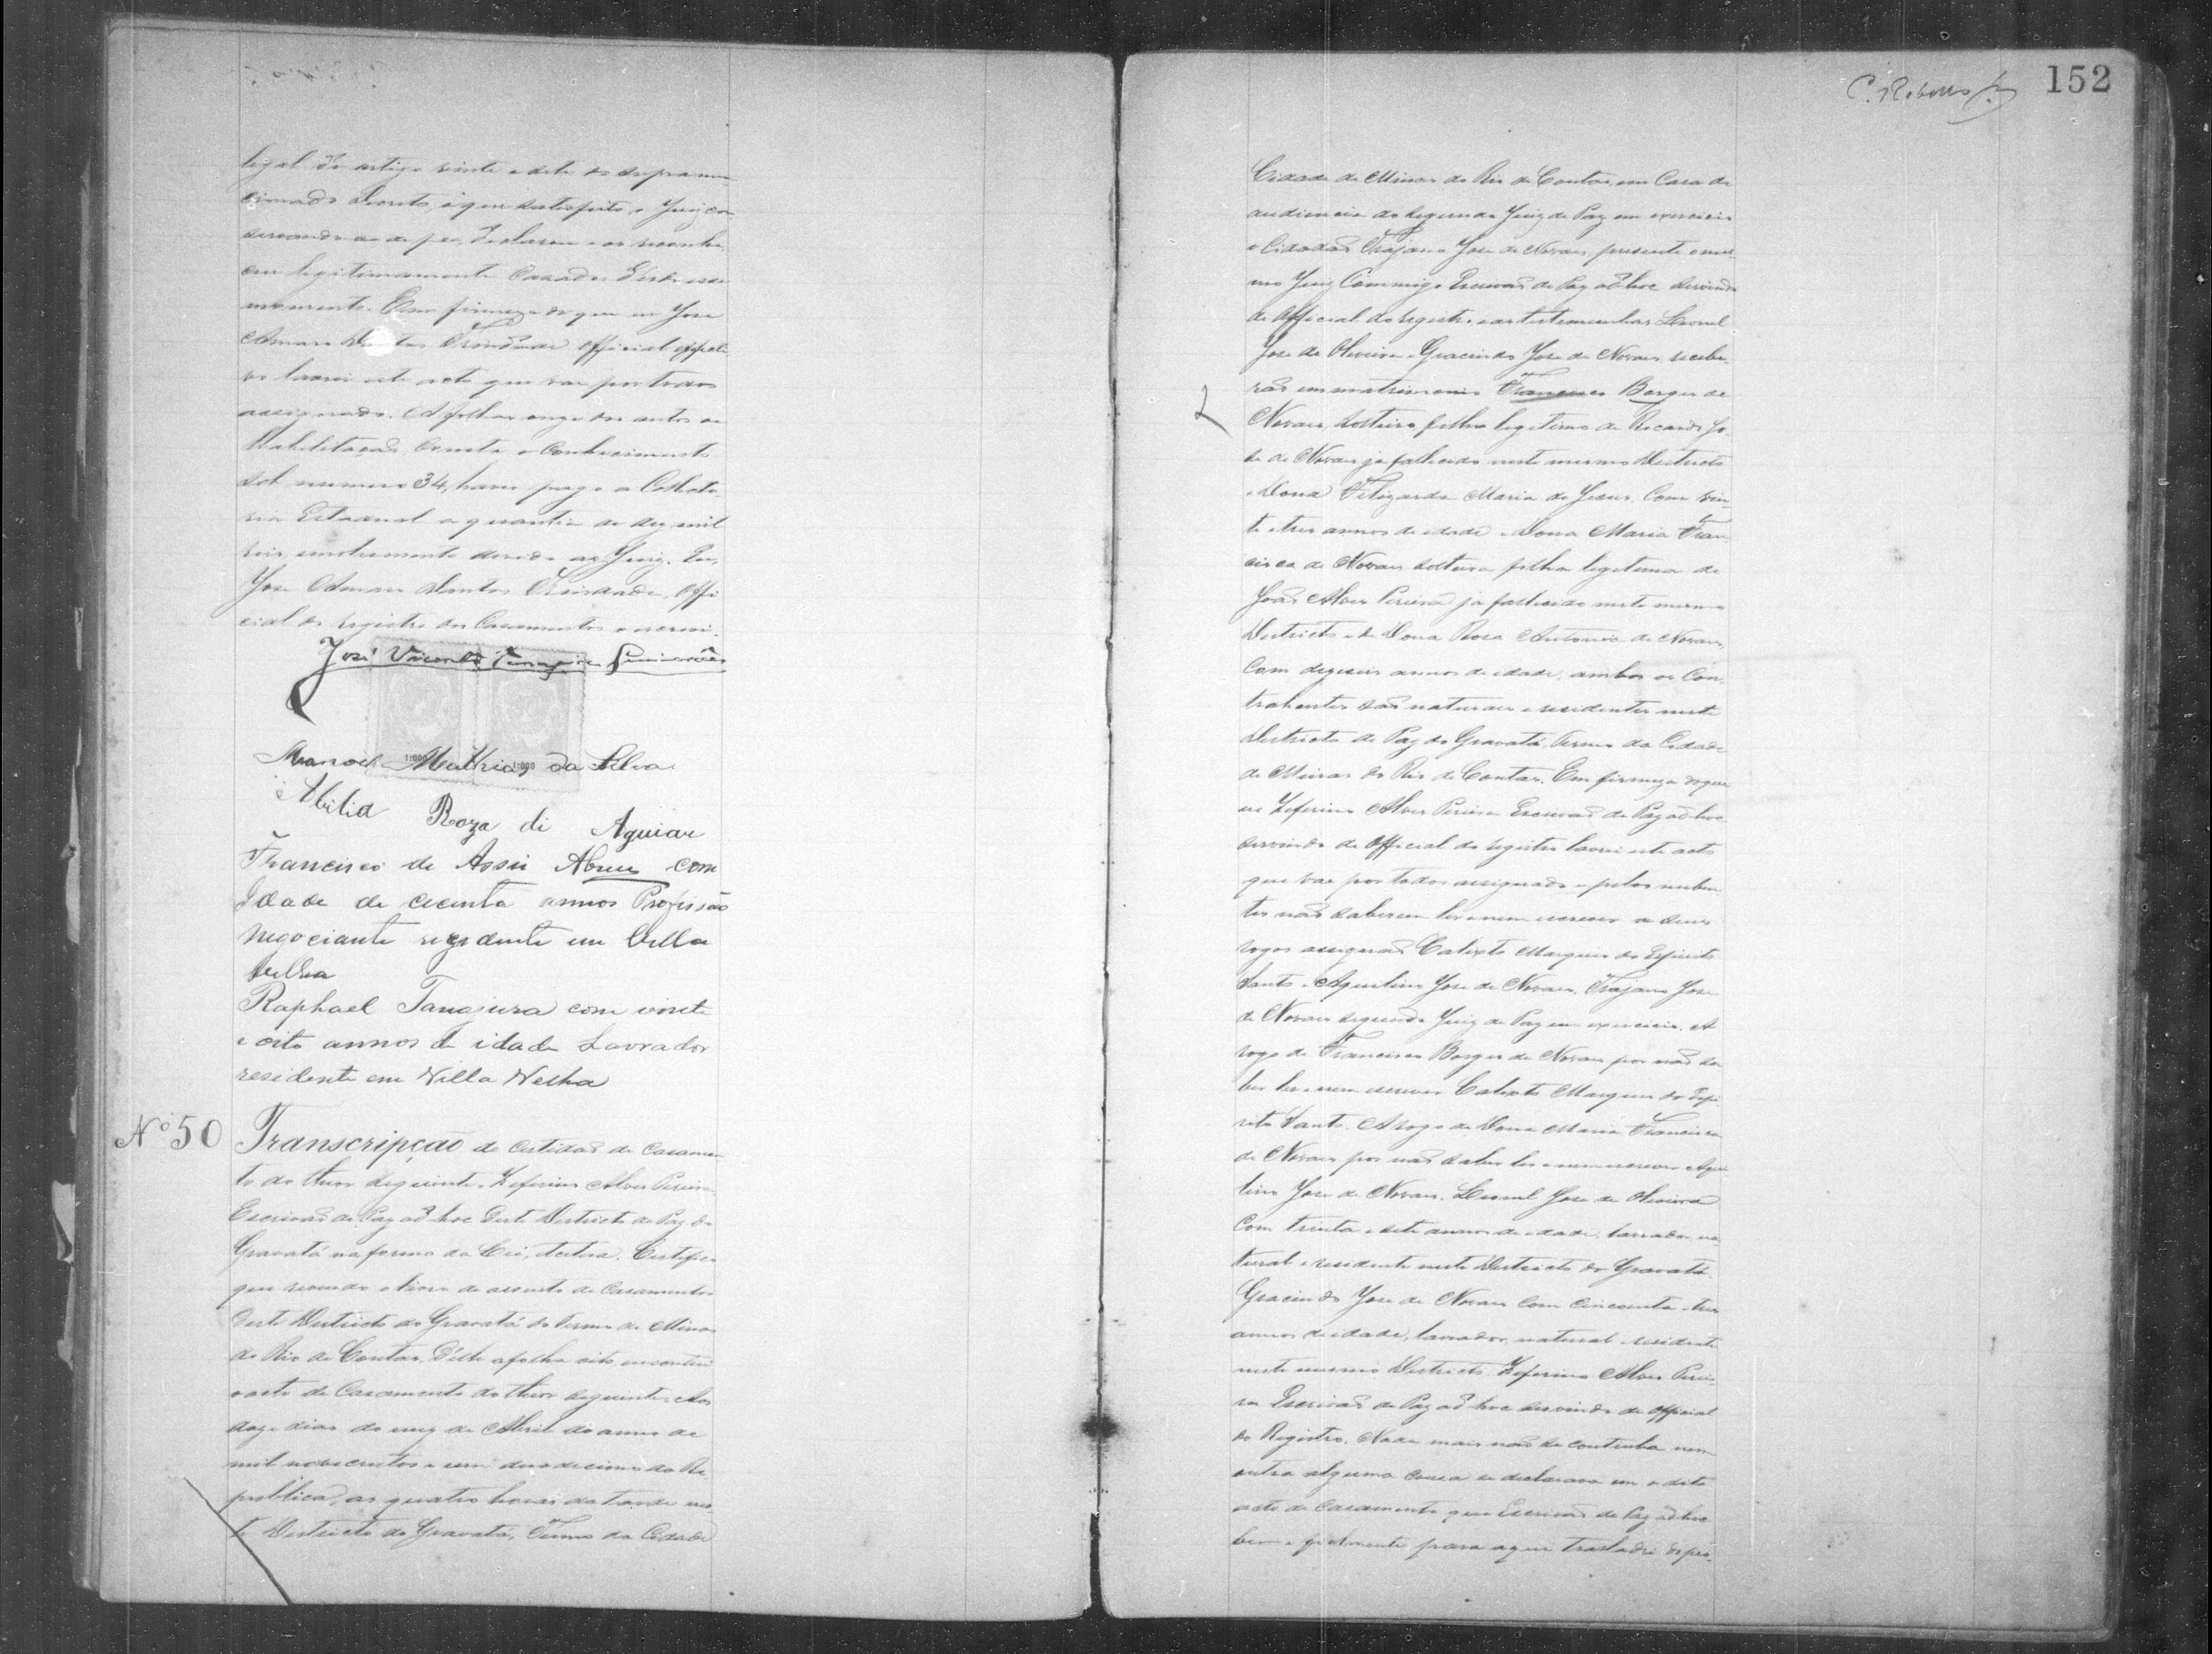 legal do artigo vinte e sete do supramen
cionado Decreto, e que satisfeito o Juiz con
servando-se de pé, declarou e os reconhe
ceu legitimamente Casados desde esse
momento. Em firmeza do que eu Jose
Amaro Dantas Trindade official effecti
vo lavrei este acto que vae por todos
assignado. A folhas onze dos autos de
Habilitação consta o Conhecimento
sob numero 34, haver pago a Collecto
ria Estadual a quantia de dez mil
reis emolumento devido ao Juiz. Eu,
Jose Amaro Dantas Trindade, Offi
cial do registro dos Casamentos o escrevi.
José Vicente Tanajura Guimarães
Manoel Mathias da Silva
Abilia Roza di Aguiar
Francisco de Assis Abreu com
Idade de cecenta annos Profissão
negociante rezidente em Villa
Velha
Raphael Tanajura com vinte
e oito annos de idade Lavrador
residente em Villa Velha
Nº 50 Transcripção de certidão de Casamen
to do theor seguinte. Zeferino Alves Pereira
Escrivão de Paz ad hoc deste Districto de Paz do
Gravatá na forma da Lei, etcetera. Certifico
que revendo o livro de assento de Casamentos
deste Districto do Gravatá do termo de Minas
do Rio de Contas, d'elle a folha oito encontrei
o acto de Casamento do theor seguinte: Aos
doze dias do mez de Abril do anno de
mil novecentos e um duodecimo da Re
publica, as quatro horas da tarde nes
te Districto do Gravatá, Termo da Cidade
C. Rebouças 152
Cidade de Minas do Rio de Contas, em Casa de
audiencia do segundo Juiz de Paz em exercicio
o Cidadão Trajano Jose de Novaes presente o mes
mo Juiz Commigo Escrivão de Paz ad hoc servindo
de Official do registro e as testemunhas Leonel
Jose de Oliveira e Gracindo Jose de Novaes, recebe
rão em matrimonio Francisco Borges de
Novaes, solteiro filho legitimo de Ricardo Jo
se de Novaes ja fallecido neste mesmo Districto
e Dona Felizarda Maria de Jesus, Com vin
te e tres annos de idade e Dona Maria Fran
cisca de Novaes solteira filha legitima de
João Alves Pereira ja fallecido neste mesmo
Districto e de Dona Rosa Antonia de Novaes,
Com dezeseis annos de idade, ambos os Con
trahentes são naturaes e residentes neste
Districto de Paz do Gravatá, Termo da Cidade
de Minas do Rio de Contas. Em firmeza do que
eu Zeferino Alves Pereira Escrivão de Paz ad hoc
servindo de Official do registro lavrei este acto
que vae por todos assignado e pelos nuben
tes não saberem ler e nem escrever a seus
rogos assignão Calixto Marques do Espirito
Santo e Aquilino Jose de Novaes. Trajano Jose
de Novaes segundo Juiz de Paz em exercicio. A
rogo de Francisco Borges de Novaes por não sa
ber ler e nem escrever Calixto Marques do Espi
rito Santo. A rogo de Dona Maria Francisca
de Novaes por não saber ler e nem escrever Aqui
lino Jose de Novaes. Leonel Jose de Oliveira
Com trinta e sete annos de idade, lavrador, na
tural e residente neste Districto do Gravatá.
Gracindo Jose de Novaes Com cincoenta e tres
annos de idade, lavrador, natural e residente
neste mesmo Districto. Zeferino Alves Perei
ra Escrivão de Paz ad hoc servindo de Official
do Registro. Nada mais não se continha nem
outra alguma cousa se declarava em o dito
acto de Casamento que Escrivão de Paz ad hoc
bem e fielmente para aqui trasladei do pro